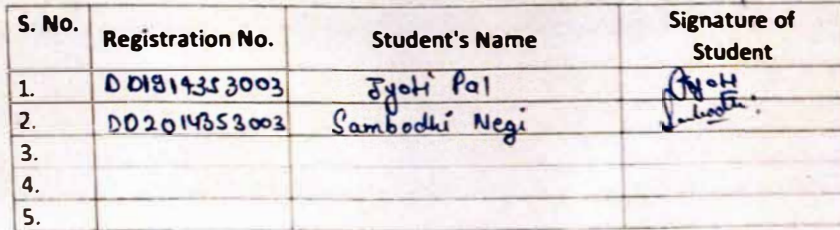 S. No. Registration No. Student's Name Signature of Student
1. DD1814353003 Jyoti Pal Jyoti
2. DD2014353003 Sambodhi Negi
3.
4.
5.